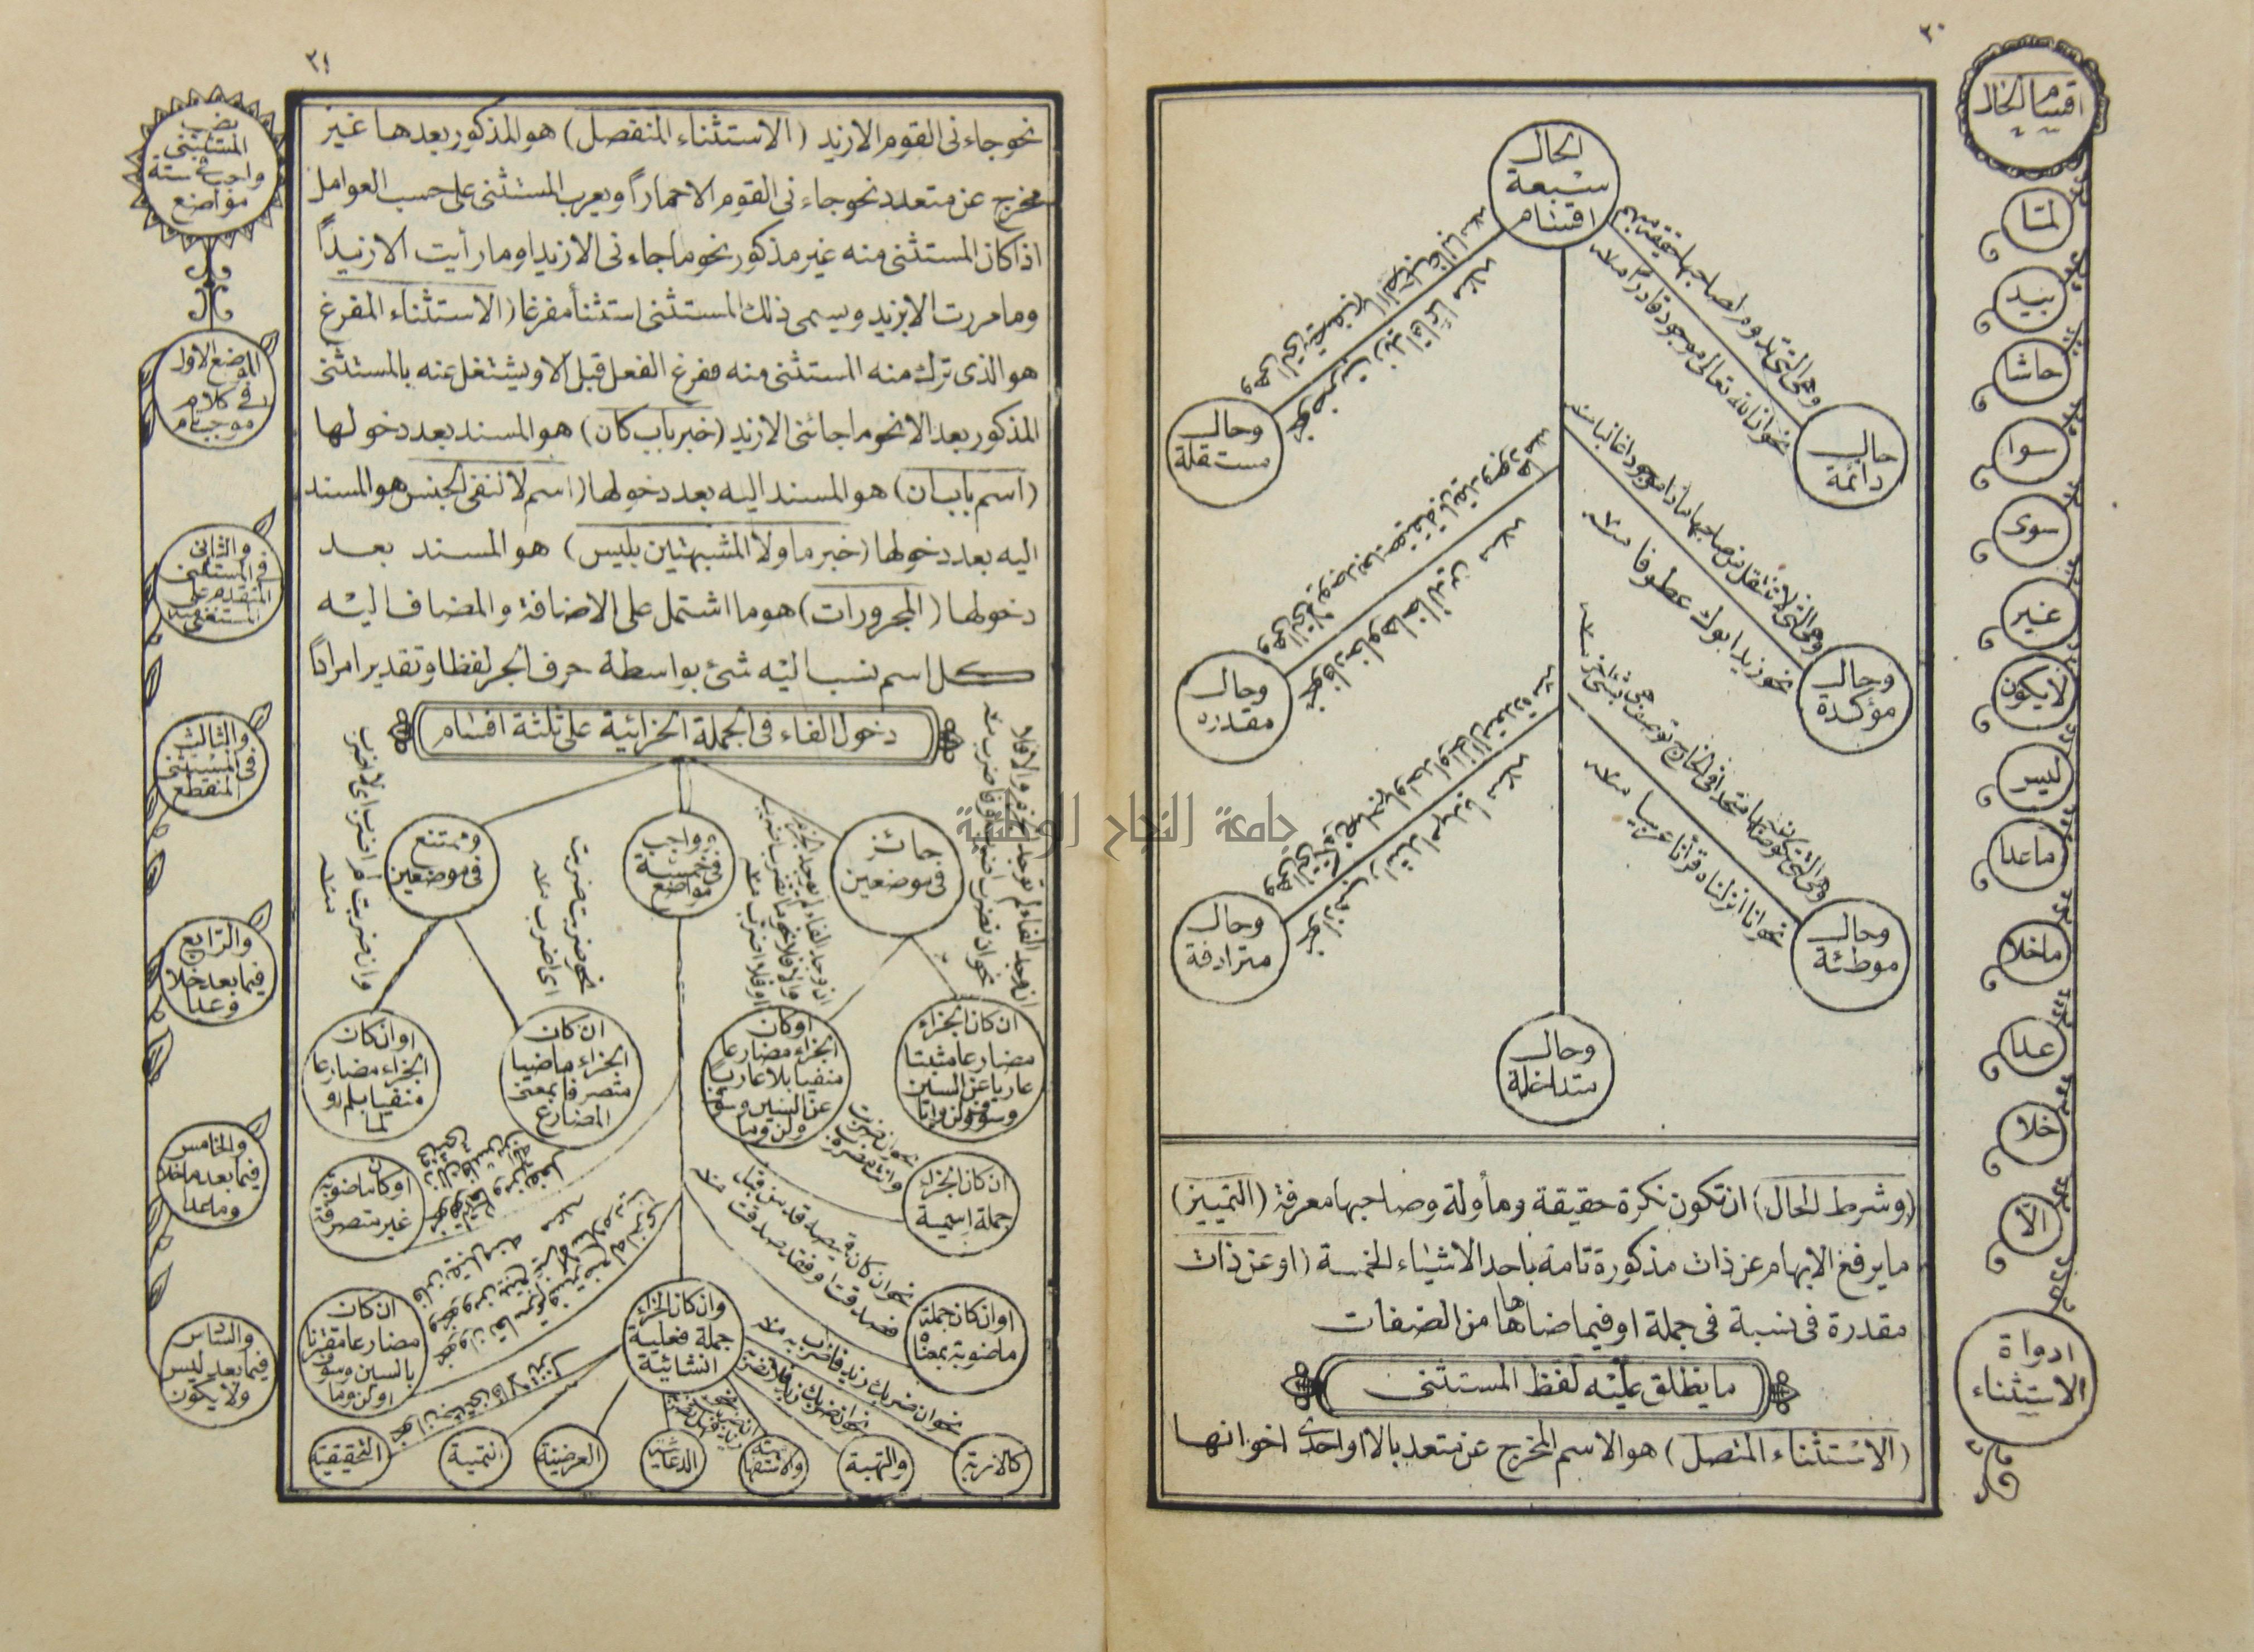 ٣٠
اقسام الحال
الحال
سبعة
اقسام
حال
دائمة
وهى التى تدوم لصاحبها
نحو ان الله تعالى موجود قادرا مثلا
وحال
مؤكدة
وهى التى لا تنتقل من صاحبها مادام موجودا غالبا
نحو زيد ابوك عطوفا مثلا
وحال
موطئة
نحو انا انزلناه قرآنا عربيا مثلا
وحال
مستقلة
نحو ضربت زيدا قائما مثلا
وحال
مقدره
نحو فادخلوها خالدين مثلا
وحال
مترادفة
وحال
متداخلة
(وشرط الحال) ان تكون نكرة حقيقة ومأولة وصاحبها معرفة (التمييز)
ما يرفع الابهام عن ذات مذكورة تامة باحد الاشياء الخمسة (او عن ذات
مقدرة فى نسبة فى جملة او فيما ضاهاها من الصفات
ما يطلق عليه لفظ المستثنى
(الاستثناء المتصل) هو الاسم المخرج عن متعدد بالا او احدى اخواتها
لمّا
بيد
حاشا
سوا
سوى
غير
لايكون
ليس
ماعدا
ماخلا
عدا
خلا
الّا
ادواة
الاستثناء
٣١
نحو جاءنى القوم الا زيد (الاستثناء المنفصل) هو المذكور بعدها غير
مخرج عن متعدد نحو جاءنى القوم الا حماراً ويعرب المستثنى على حسب العوامل
اذا كان المستثنى منه غير مذكور نحو ما جاءنى الا زيد او ما رأيت الا زيداً
وما مررت الا بزيد ويسمى ذلك المستثنى استثناً مفرغا (الاستثناء المفرغ
هو الذى ترك منه المستثنى منه ففرغ الفعل قبل الا ويشتغل عنه بالمستثنى
المذكور بعد الا نحو ما جائنى الا زيد (خبر باب كان) هو المسند بعد دخولها
(اسم باب ان) هو المسند اليه بعد دخولها (اسم لا لنفى الجنس هو المسند
اليه بعد دخولها (خبر ما ولا المشبهتين بليس) هو المسند بعد
دخولها (المجرورات) هو ما اشتمل على الاضافة والمضاف اليه
كل اسم نسب اليه شئ بواسطة حرف الجر لفظا او تقدير امراداً
دخول الفاء فى الجملة الجزائية على ثلثة اقسام
جائز
فى موضعين
واجب
فى خمسة
مواضع
وممتنع
فى موضعين
ان كان الجزاء
مضارعا مثبتا
عاريا عن السين
وسوف ولن وما
او كان
الجزاء مضارعا
منفيا بلا عاريا
عن السين وسوف
ولن وما
ان كان
الجزاء ماضيا
متصرفا بمعنى
المضارع
او ان كان
الجزاء مضارعا
منفيا بلم او
لما
نحو ضربت ضربت
اى اضرب مثلا
ان كان الجزاء
جملة اسمية
او كان ماضوية
غير متصرفة
او ان كان جملة
ماضوية بمعناه
وان كان الجزاء
جملة فعلية
انشائية
ان كان
مضارعا مقترنا
بالسين وسوف
او لن وما
نحو ان ضربك زيد فاضرب به مثلا
كالامرية
والنهية
والاستفهامية
الدعائية
العرضية
التمنية
التحقيقية
نصب
المستثنى
واجب فى ستة
مواضع
الموضع الاول
فى كلام
موجب تام
والثانى
فى المستثنى
المتقدم على
المستثنى منه
والثالث
فى المستثنى
المنقطع
والرابع
فيما بعد خلا
وعدا
والخامس
فيما بعد ماخلا
وماعدا
والسادس
فيما بعد ليس
ولا يكون
جامعة النجاح الوطنية